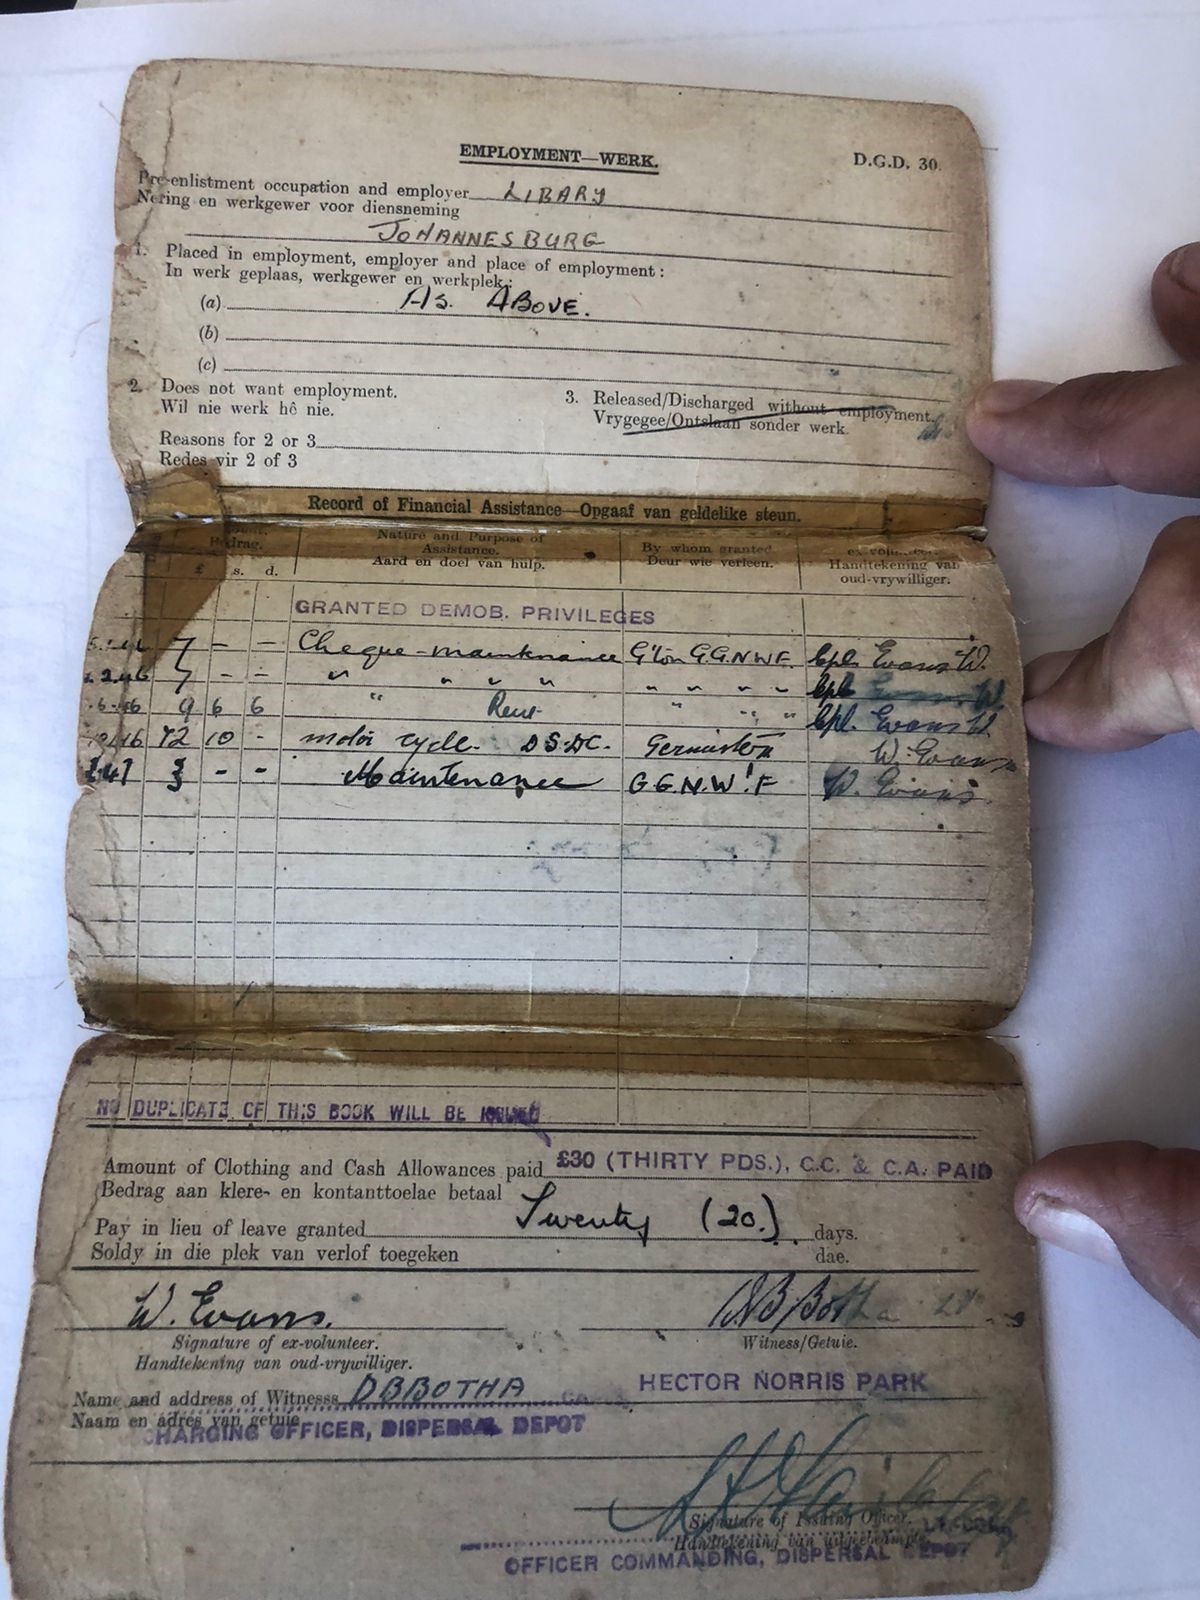 EMPLOYMENT—WERK.
D.G.D. 30.
Pre-enlistment occupation and employer LIBARY
Nering en werkgewer voor diensneming
JOHANNESBURG
1. Placed in employment, employer and place of employment:
In werk geplaas, werkgewer en werkplek:
(a) AS. ABOVE.
(b)
(c)
2. Does not want employment.
Wil nie werk hê nie.
3. Released/Discharged without employment.
Vrygegee/Ontslaan sonder werk.
Reasons for 2 or 3
Redes vir 2 of 3
Record of Financial Assistance—Opgaaf van geldelike steun.
Bedrag.
£ s. d.
Nature and Purpose of
Assistance.
Aard en doel van hulp.
By whom granted
Deur wie verleen.
Handtekening van
oud-vrywilliger.
GRANTED DEMOB. PRIVILEGES
7 – – Cheque – maintenance G'ton G.G.N.W.F. Cpl. Evans W.
7 – – " " " " " " " " Cpl.
9 6 6 " Rent " " " Cpl. Evans W.
72 10 - motor cycle. D.S.D.C. Germiston W. Evans
3 - - Maintenance G G.N.W.F W. Evans
NO DUPLICATE OF THIS BOOK WILL BE ISSUED
Amount of Clothing and Cash Allowances paid £30 (THIRTY PDS.), C.C. & C.A. PAID
Bedrag aan klere- en kontanttoelae betaal
Pay in lieu of leave granted Twenty (20.) days.
Soldy in die plek van verlof toegeken dae.
W. Evans.
DB Botha
Signature of ex-volunteer.
Handtekening van oud-vrywilliger.
Witness/Getuie.
Name and address of Witness DBBOTHA HECTOR NORRIS PARK
Naam en adres van getuie
CHARGING OFFICER, DISPERSAL DEPOT
Signature of Issuing Officer.
OFFICER COMMANDING, DISPERSAL DEPOT